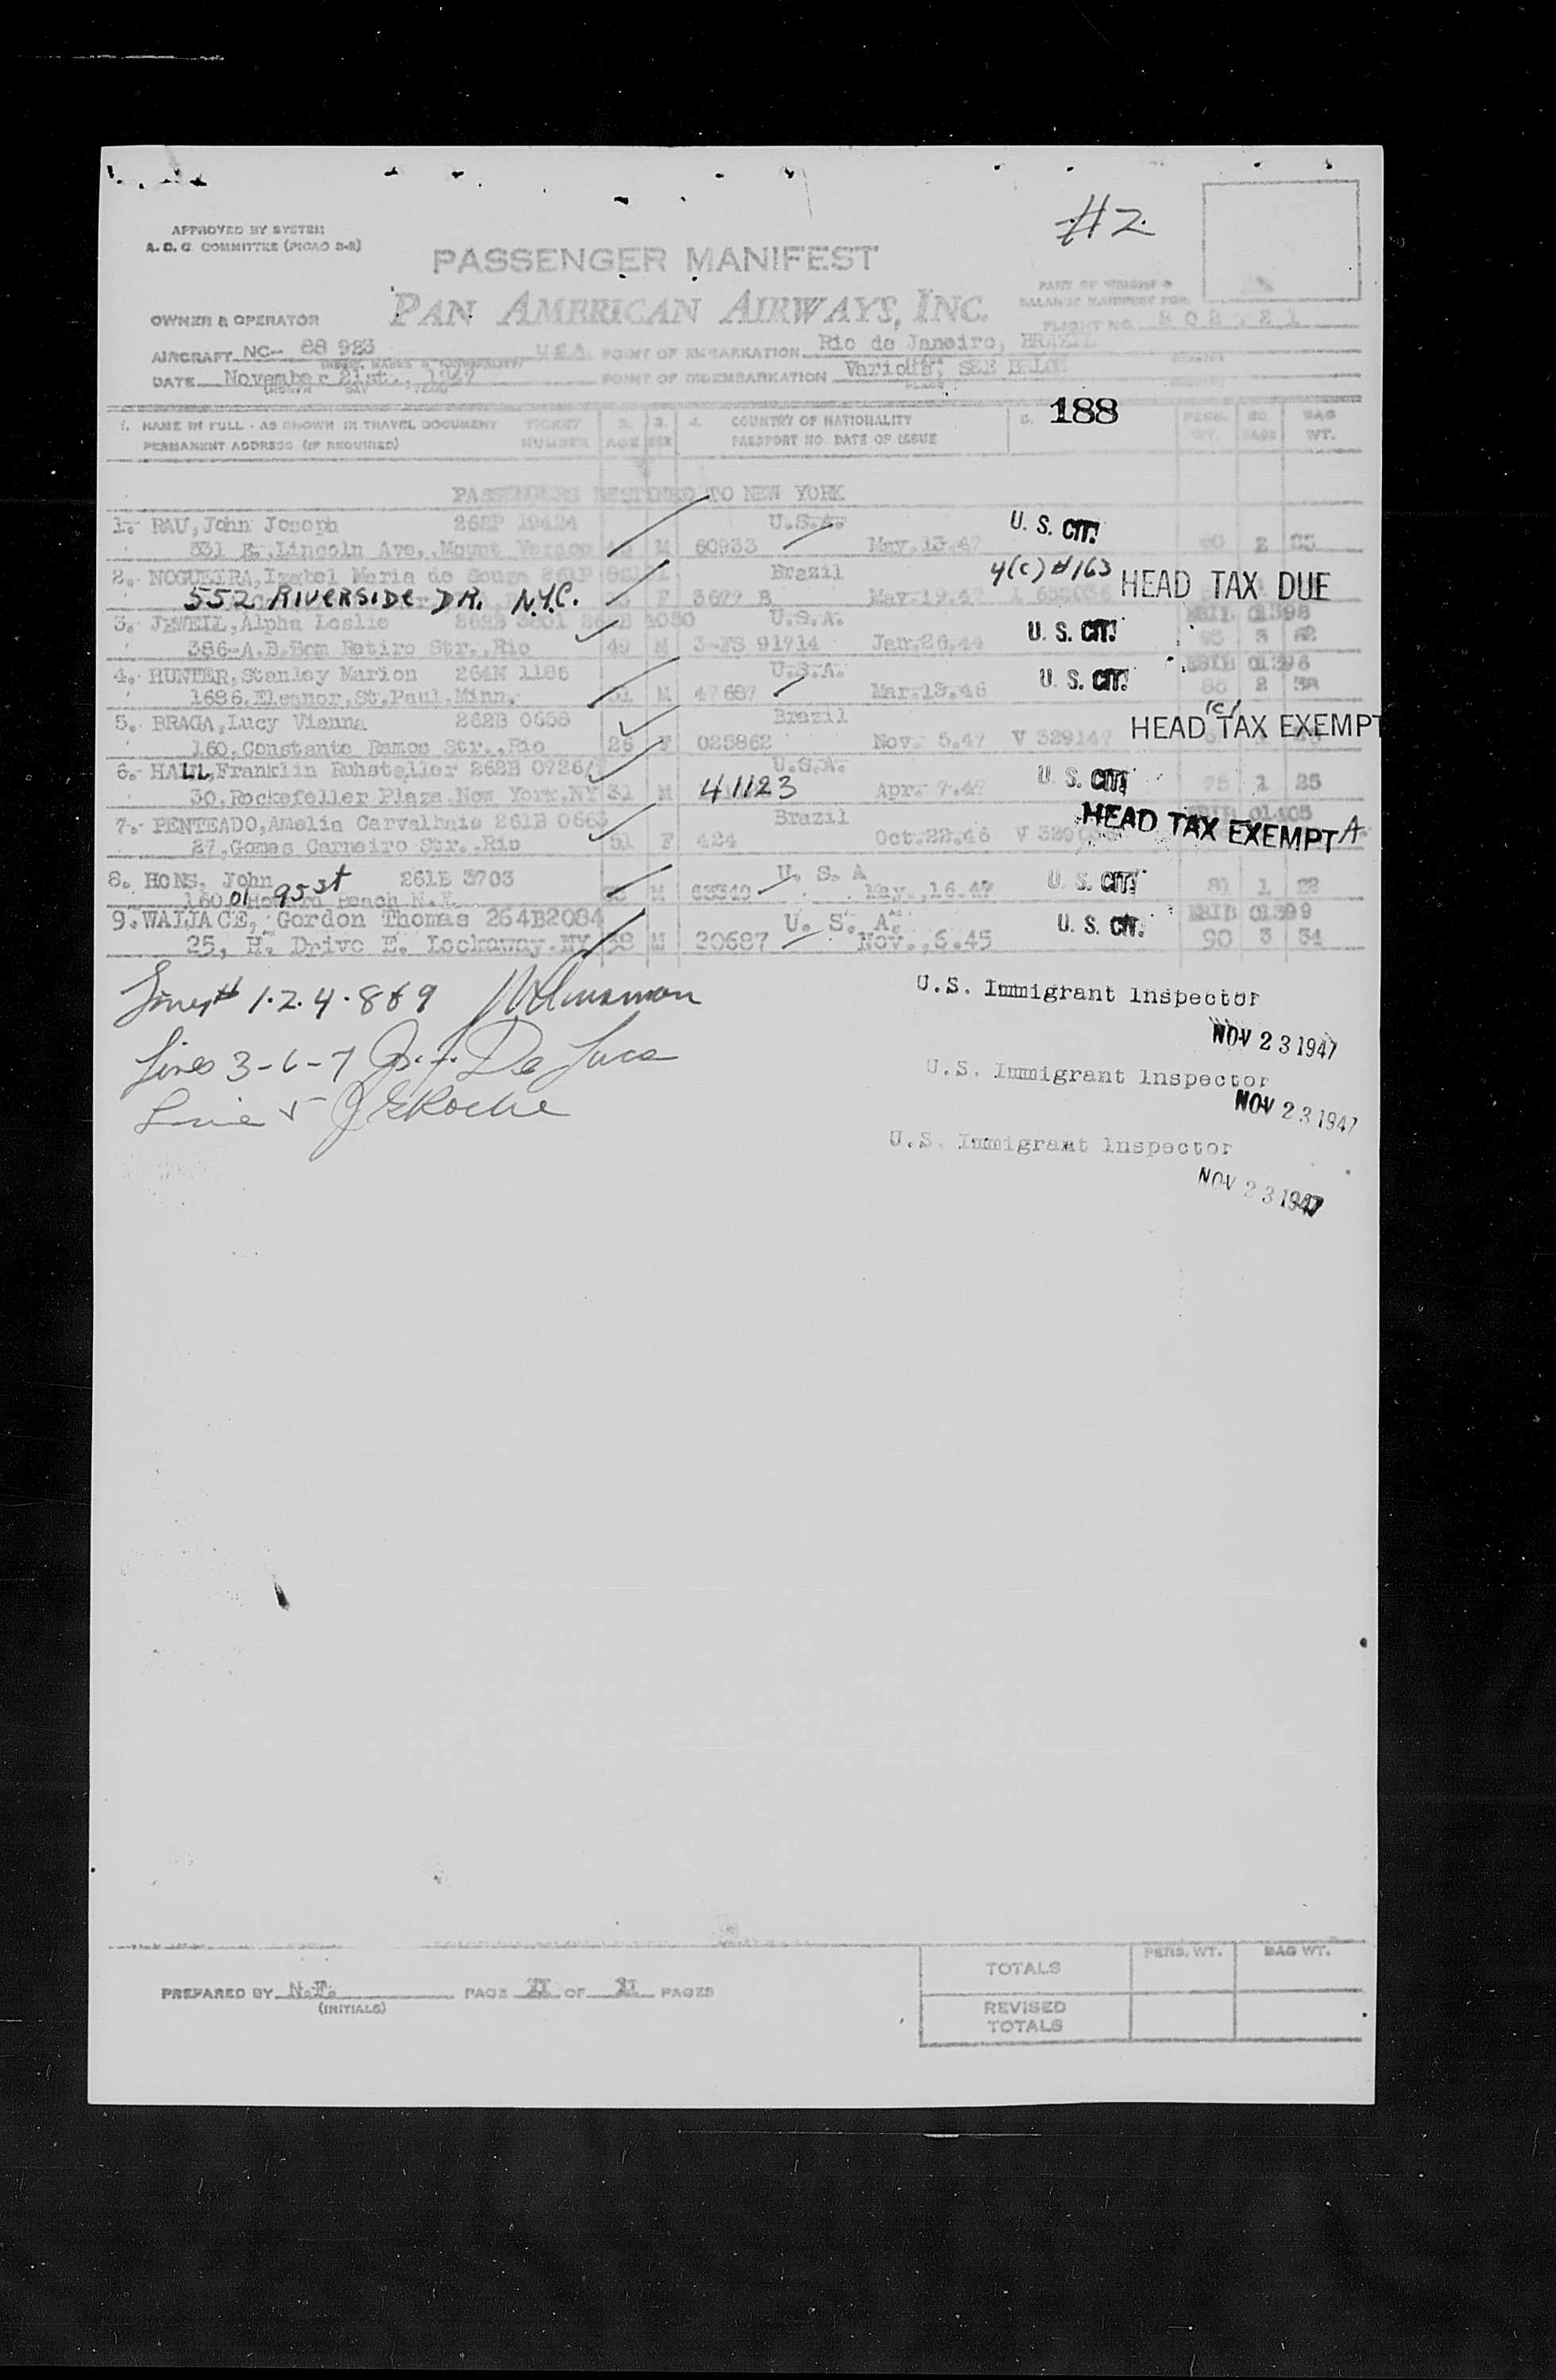 #2
APPROVED BY SYSTEM
A. O. C. COMMITTEE (PICAO 3-2)
PASSENGER MANIFEST
PART OF WEIGHT &
BALANCE MANIFEST FOR
OWNER & OPERATOR PAN AMERICAN AIRWAYS, INC.
FLIGHT NO.
AIRCRAFT NC- 88 923 POINT OF EMBARKATION Rio de Janeiro, BRAZIL
DATE November 21st., 1947 POINT OF DISEMBARKATION Various; SEE BELOW
PLACE
188
1. NAME IN FULL - AS SHOWN IN TRAVEL DOCUMENT TICKET 2. 3. 4. COUNTRY OF NATIONALITY 5. PERS. NO. BAG
PERMANENT ADDRESS (IF REQUIRED) NUMBER AGE SEX PASSPORT NO. DATE OF ISSUE WT. BAGS WT.
PASSENGERS DESTINED TO NEW YORK
1. RAU, John Joseph 262P 19424 U.S.A. U. S. CIT.
331 E. Lincoln Ave., Mount Vernon M 60933 May.13.47 2
2. NOGUEIRA, Izabel Maria de Souza 261P Brazil 4(c) #163 HEAD TAX DUE
552 RIVERSIDE DR. N.Y.C. F 3627 B May.19.47
3. JEWELL, Alpha Leslie U.S.A. U. S. CIT. 01398
386-A.B.Bom Retiro Str., Rio 49 M 3-FS 91714 Jan.26.44
4. HUNTER, Stanley Marion 264N 1186 U.S.A. U. S. CIT. 01398
1686.Eleanor, St.Paul.Minn. 31 M 47687 Mar.13.46 2
5. BRAGA, Lucy Vianna 262B Brazil (c) HEAD TAX EXEMPT
160, Constante Ramos Str., Rio 26 F 025862 Nov. 5.47 V 329147
6. HALL, Franklin Ruhsteller 262B 0726/ U.S.A. U. S. CIT.
30, Rockefeller Plaza New York, NY 31 M 41123 Apr. 7.47 1 25
7. PENTEADO, Amelia Carvalhais 261B Brazil HEAD TAX EXEMPT A 01405
27, Gomes Carneiro Str., Rio 51 F 424 Oct.22.46
8. HONS, John 261B 3703 U. S. A U. S. CIT.
160 01 95 st Howard Beach N.Y. M 63340 May.,16.47 81 1 22
9. WALLACE, Gordon Thomas 264B2084 U. S. A. U. S. CIT. 01399
25, H. Drive E. Rockaway.NY 38 M 20687 Nov.,6.45 90 3 34
Lines # 1.2.4.8&9
U.S. Immigrant Inspector
NOV 23 1947
Lines 3-6-7 De Luca
U.S. Immigrant Inspector
NOV 23 1947
Line 5 Roche
U.S. Immigrant Inspector
NOV 23 1947
PERS. WT. BAG WT.
TOTALS
PREPARED BY N.F. PAGE II OF II PAGES
(INITIALS)
REVISED
TOTALS